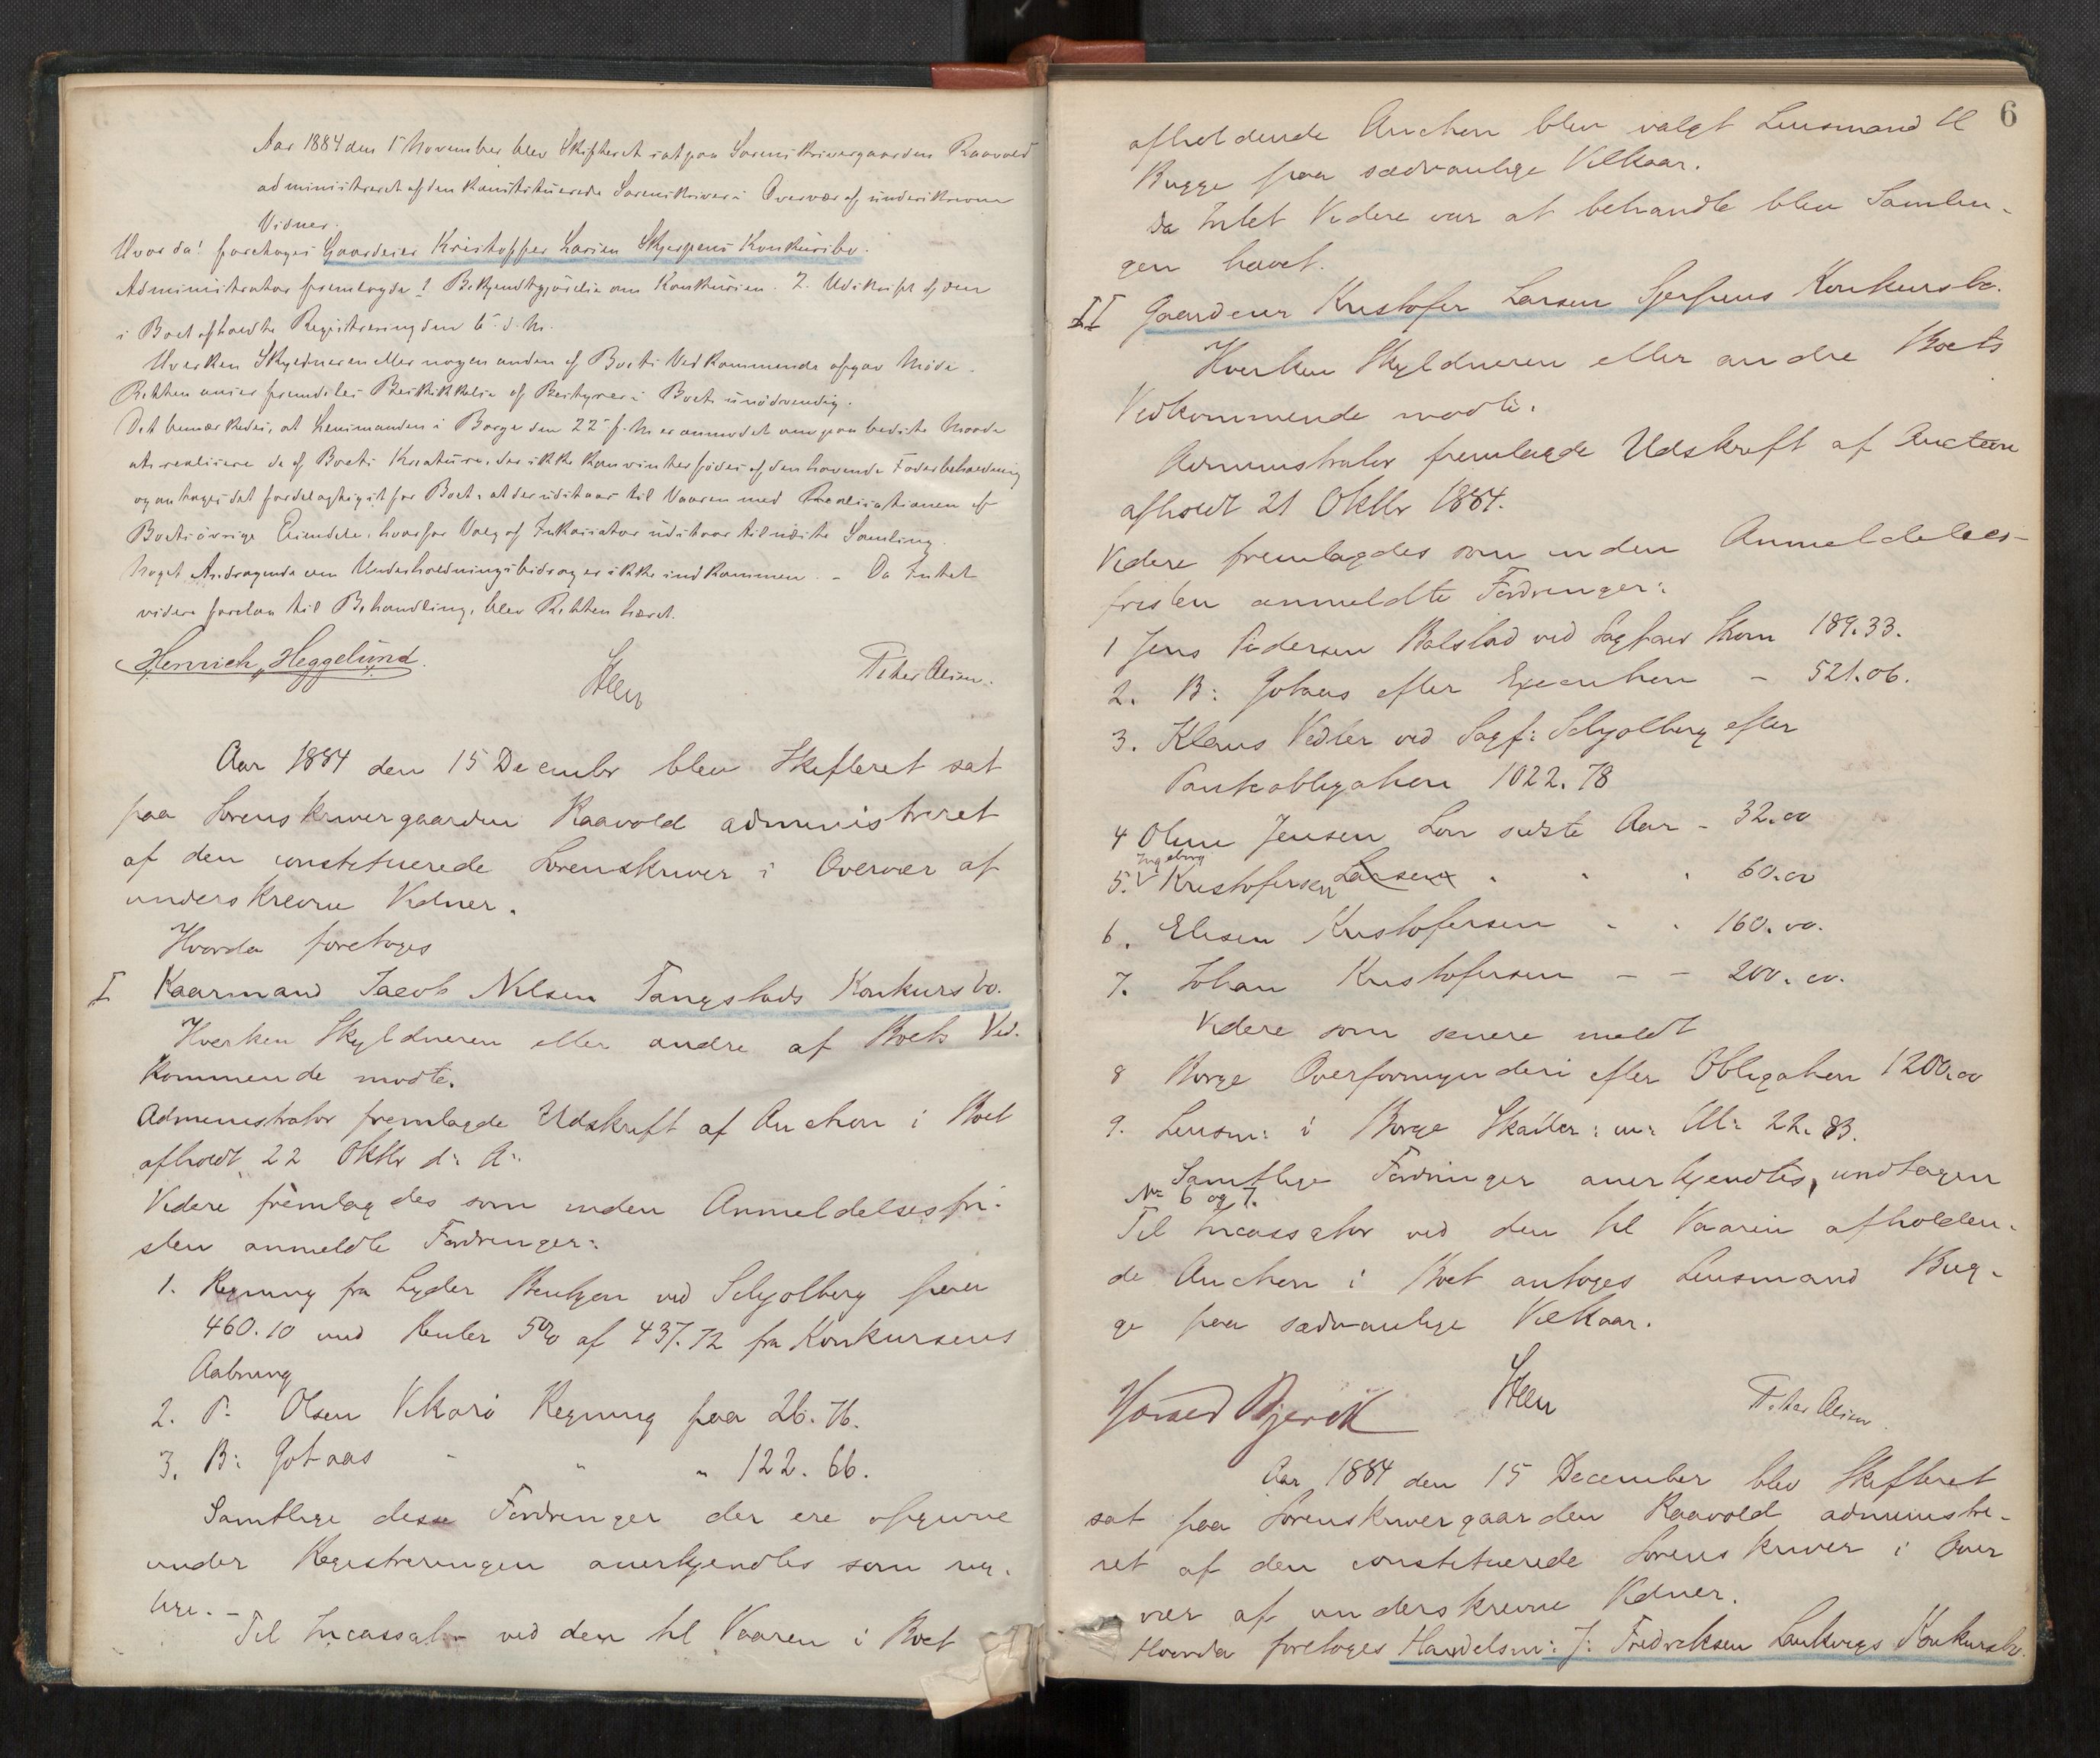 Aar 1884 den 5 November blev Skifteret sat paa Sorenskrivergaarden Raavold
administreret af den Konstituerede Sorenskriver i Overvær af underskrevne
Vidner.
Hvorda! foretoges Gaardeier Kristoffer Larsen Skjerpens Konkursbo.
Administrator fremlagde 1 Bekjendtgjörelse om Konkursen. 2. Udskrift af den
i Boet afholdte Registrering den 6 d. M.
Hverken Skyldneren eller nogen anden af Boets Vedkommende afgav Möde.
Retten anser fremdeles Beskikkelse af Bestyrer i Boet unödvendig.
Det bemærkedes, at Lensmanden i Borge den 22 f. M. er anmodet om paa bedste Maade
at realisere de af Boets Kreature, der ikke kan vinterfödes af den havende Foderbeholdning
og antoges det fordelagtigst for Boet, at der udstaar til Vaaren med Realisationen af
Boets övrige Eiendele, hvorfor Valg af Inkassator udstaar til næste Samling.
Noget Andragende om Underholdningsbidrag er ikke indkommen. - Da Intet
videre forelaa til Behandling, blev Retten hævet.
Henrich Heggelund. Steen Peter Olsen.
Aar 1884 den 15 Decembr blev Skifteret sat
paa Sorenskrivergaarden Raavold administreret
af den constituerede Sorenskriver i Overvær af
underskrevne Vidner.
Hvorda foretoges
I Kaarmand Jacob Nilsen Tangstads Konkursbo.
Hverken Skyldneren eller andre af Boets Ved-
kommende mødte.
Administrator fremlagde Udskrift af Auction i Boet
afholdt 22 Oktbr d: A:.
Videre fremlagdes som inden Anmeldelsesfri-
sten anmeldte Fordringer:
1. Regning fra Lyder Bentzon ved Schjølberg paa
460.10 med Renter 5% af 437.72 fra Konkursens
Aabning
2. P. Olsen Vikarø Regning paa 26.76.
3. B: Gotaas - " " 122.66.
Samtlige disse Fordringer der ere opgivne
under Registreringen anerkjendtes som rig-
tige. -
Til Incassator ved den til Vaaren i Boet
6
afholdende Auction blev valgt Lensmand til
Bugge paa sædvanlige Vilkaar.
Da Intet Videre var at behandle blev Samlin-
gen hævet.
II Gaardeier Kristofer Larsen Sjerpens Konkursbo.
Hverken Skyldneren eller andre Boets
Vedkommende mødte.
Administrator fremlagde Udskrift af Auction
afholdt 21 Oktbr 1884.
Videre fremlagdes som inden Anmeldelses-
fristen anmeldte Fordringer:
1 Jens Pedersen Balstad ved Sagfører 189.33.
2. B: Gotaas efter Execution - 521.06.
3. Klaus Vedler ved Sagf: Schjølberg efter
Panteobligation 1022.78
4 Oline Jensen Løn sidste Aar - 32.00
Ingeborg
5. Kristofersen Larsen " " " 60.00
6. Elisen Kristofersen - - 160.00.
7. Johan Kristofersen - - 200.00.
Videre som senere meldt
8 Borge Overformynderi efter Obligation 1200.00
9. Lensm: i Borge Skatter: m: M: 22.83.
Samtlige Fordringer anerkjendtes, undtagen
No 6 og 7.
Til Incassator ved den til Vaaren afholden-
de Auction i Boet antoges Lensmand Bug-
ge paa sædvanlige Vilkaar.
Steen Peter Olsen
Aar 1884 den 15 December blev Skifteret
sat paa Sorenskrivergaarden Raavold administre-
ret af den constituerede Sorenskriver i Over
vær af underskrevne Vidner.
Hvorda foretoges Handelsm: J: Fredriksen Laukvigs Konkursbo.